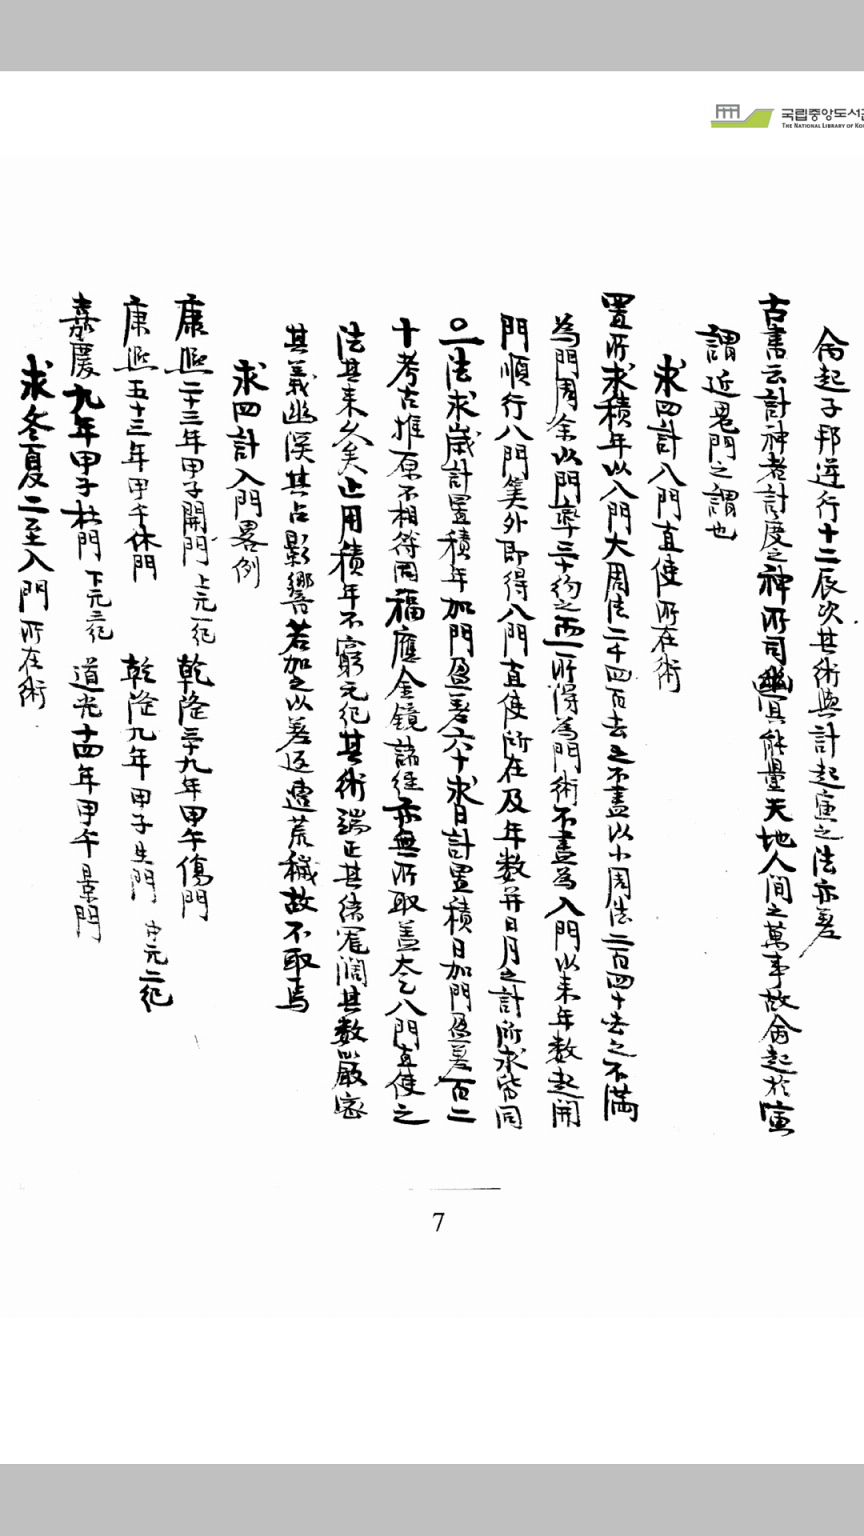 국립중앙도서관
THE NATIONAL LIBRARY OF KO
命起子邦逆行十二辰次其術與計起寅之法亦差
古書云計神者計度之神所司幽冥能量天地人間之萬事故命起於寅
謂近鬼門之謂也
求四計八門直使所在術
置所求積年以八門大周法二千四百去之不盡以小周法二百四十去之不滿
為門周余以門率三十約之而一所得為門術不盡為入門以来年数起開
門順行八門筭外即得八門直使所在及年数并日月之計所求皆同
○一法求歲計置積年加門盈差六十求日計置積日加門盈差百二
十考古推原不相符同福應金鏡諸經亦無所取盖太乙八門直使之
法其来久矣止用積年不窮元紀其術端正其綜寬濶其数嚴密
其義幽深其占影響若加之以差返遭荒穢故不取焉
求四計入門畧例
康熙二十三年甲子開門 上元一紀 乾隆三十九年甲午傷門
康熙五十三年甲午休門 乾隆九年甲子生門 中元二紀
嘉慶九年甲子杜門 下元三紀 道光十四年甲午景門
求冬夏二至入門所在術
7